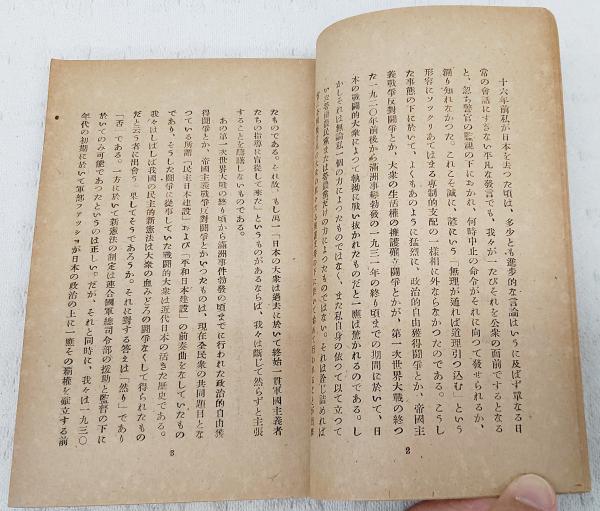 十六年前私が日本を去つた頃は、多少とも進步的な言論はいうに及ばず單なる日
常の會話にすぎない平凡な發言でも、我々が一たびそれを公衆の面前でするとなる
と、忽ち警官の監視の下におかれ、何時中止の命令がそれに向つて發せられるか、
測り知れなかつた。これこそ誠に、諺にいう「無理が通れば道理引つ込む」という
形容にソックリあてはまる專制的支配の一樣相に外ならなかつたのである。こうし
た事態の下に於いて、よくもあのように猛烈に、政治的自由獲得鬪爭とか、帝國主
義戰爭反對鬪爭とか、大衆の生活權の擁護確立鬪爭とかが、第一次世界大戰の終つ
た一九二〇年前後から滿洲事變勃發の一九三一年の終り頃までの期間に於いて、日
本の戰鬪的大衆によつて執拗に戰い拔かれたものだと一應は驚かれるのである。し
かしそれは無論私一個の力によつたものではなく、また私自身の依つて以て立つて
いた勞働農民黨または勞農黨だけの力によつたものではない。それは詮じ詰めれば
2
たものである。それ故、もし萬一「日本の大衆は過去に於いて終始一貫軍國主義者
たちの指導に盲從して來た」というものがあるならば、我々は斷じて然らずと主張
することを躊躇しないものである。
あの第一次世界大戰の終り頃から滿洲事件勃發の頃までに行われた政治的自由獲
得鬪爭とか、帝國主義戰爭反對鬪爭とかいつたものは、現在全民衆の共同題目とな
つている所謂「民主日本建設」および「平和日本建設」の前奏曲をなしていたもの
であり、そうした鬪爭に從事していた戰鬪的大衆は近代日本の活きた歷史である。
我々はしばしば我國の民主的新憲法は大衆の血みどろの鬪爭なくして得られたもの
だと云う者に出會う。果してそうであろうか。それに對する答えは「然り」であり
「否」である。一方に於いて新憲法の制定は連合國軍總司令部の援助と監督の下に
於いてのみ可能であつたというのは正しい。だが、それと同時に、我々は一九三〇
年代の初期に於いて軍部ファッショが日本の政治の上に一應その覇權を確立する前
3